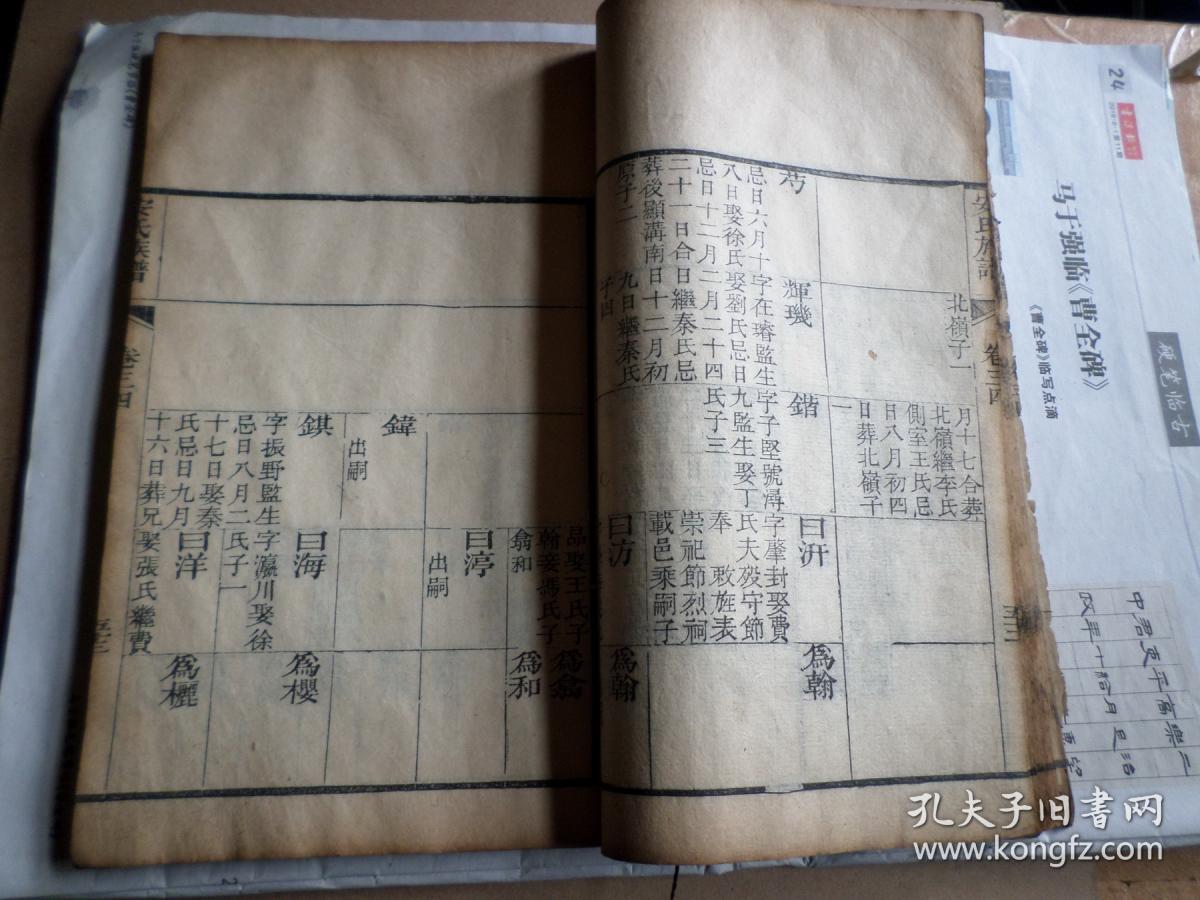 安氏族譜
卷三四
五十三
北嶺子一
月十七合葬
北嶺繼李氏
側室王氏忌
日八月初四
日葬北嶺子
一
輝璣
字在璿監生
娶劉氏忌日
二月二十四
日繼秦氏忌
日十二月初
九日繼秦氏
子四
忌日六月十
八日娶徐氏
忌日十二月
二十一日合
葬後顯溝南
原子二
鍇
字子堅號潯
九監生娶丁
氏子三
曰汧
字肇封娶費
氏夫殁守節
奉 敕旌表
崇祀節烈祠
載邑乘嗣子
為翰
曰汸
為翰
品娶王氏子
翰妾馮氏子
翕和
為翕
為和
曰渟
出嗣
鍏
出嗣
錤
字振野監生
忌日八月二
十七日娶秦
氏忌日九月
十六日葬兄
曰海
字瀛川娶徐
氏子一
為櫻
曰洋
娶張氏繼費
為欐
安氏族譜
卷三四
五十三
24
马于强临《曹全碑》
《曹全碑》临写点滴
硬笔临古
孔夫子旧书网
www.kongfz.com